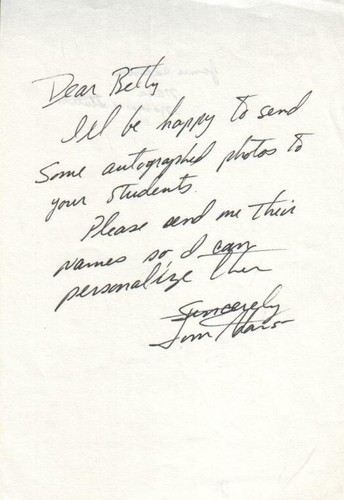 Dear Betty
I'll be happy to send
Some autographed photos to
your students.
Please send me their
names so I can
personalize them
Sincerely
Tom